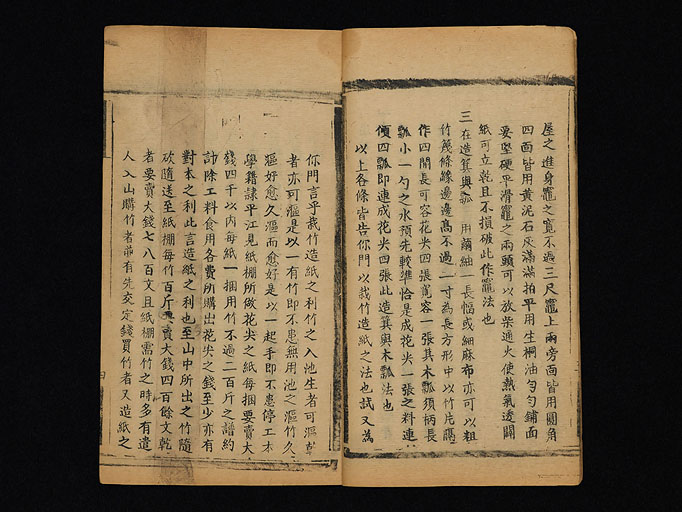 屋之進身竈之寬不過三尺竈上兩旁面皆用圓角
四面皆用黄泥石灰滿滿拍平用生桐油勻勻鋪面
要堅硬平滑竈之兩頭可以放柴進火使熱氣透開
紙可立乾且不損破此作竈法也
三在造箕與瓢 用 紬一長幅或細麻布亦可以粗
竹篾條緣邊邊高不過二寸為長方形中以竹片隔
作四開長可容花尖四張寬容一張其木瓢須柄長
瓢小一勺之水預先較準恰是成花尖一張之料連
傾四瓢即連成花尖四張此造箕與木瓢法也
以上各條皆告你門以栽竹造紙之法也試又為
你門言乎栽竹造紙之利竹之入池生者可漚乾
者亦可漚是以一有竹即不患無用池之漚竹久
漚好愈久漚而愈好是以一起手即不患停工木
學籍隸平江見紙棚所做花尖之紙每捆要賣大
錢四千以内每紙一捆用竹不過二百斤之譜約
計除工料食用各費所購出花尖之錢至少亦有
對本之利此言造紙之利也至山中所出之竹隨
砍隨送至紙棚每竹百斤 賣大錢四百餘文乾
者要賣大錢七八百文且紙棚需竹之時多有遣
人入山購竹者並有先交定錢買竹者又造紙之